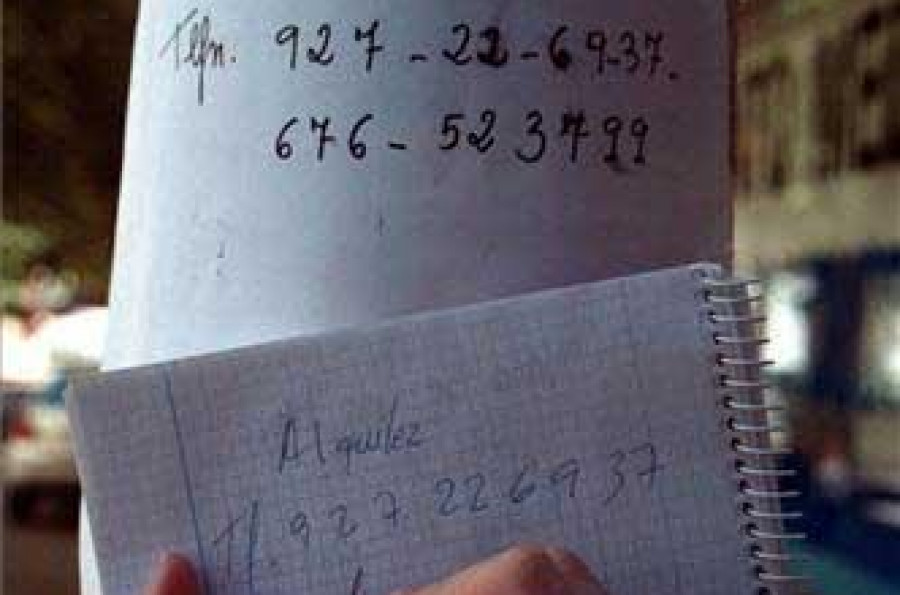 Tlfn. 927-22-69-37.
676-523799
Alquilez
Tl. 927. 226937